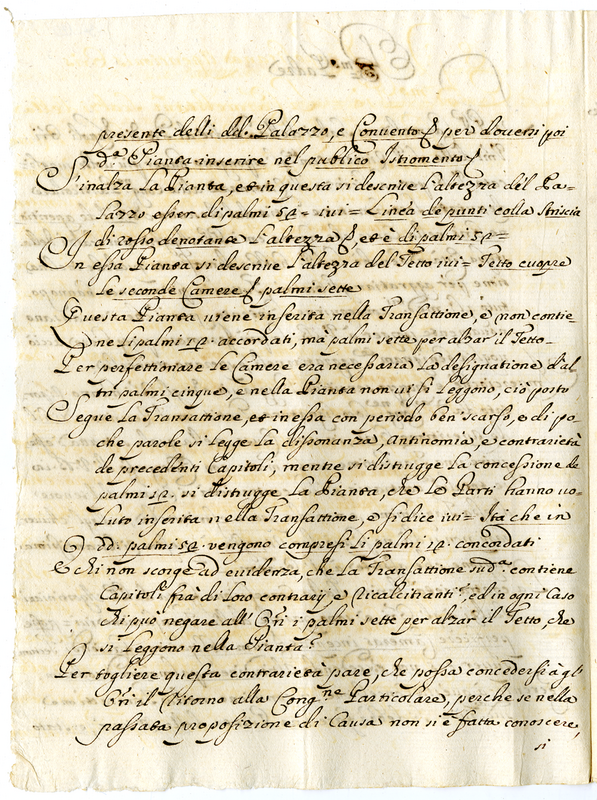 presente delli dd. Palazzo, e Convento per doversi poi
d.ª Pianta inserire nel publico Istromento
S'inalza la Pianta, et in questa si descrive l'altezza del Pa=
lazzo esser di palmi 52 = ivi = Linea de punti colla striscia
di rosso denotante l'altezza, et è di palmi 52 =
In essa Pianta si descrive l'altezza del Tetto ivi = Tetto cuopre
le seconde Camere palmi sette
Questa Pianta viene inserita nella Transattione, e non contie=
ne li palmi 12. accordati, mà palmi sette per alzar il Tetto.
Per perfettionare le Camere era necessaria la designatione d'al
tri palmi cinque, e nella Pianta non vi si leggono, ciò posto
Segue la Transattione, et in essa con periodo ben scarso, e di po=
che parole si legge la dissonanza, Antinomia, e contrarietà
de precedenti Capitoli, mentre si distrugge la concessione de
palmi 12. si distrugge la Pianta, che le Parti hanno vo=
luto inserita nella Transattione, e si dice ivi = Ita che in
dd. palmi 52. vengono compresi li palmi 12. concordati
E chi non scorge ad evidenza, che la Transattione sud.ª contiene
Capitoli fra di loro contrarij, e ricalcitranti, ed in ogni caso
chi può negare all' i palmi sette per alzar il Tetto, che
si leggono nella Pianta?
Per togliere questa contrarietà pare, che possa concedersi à gl'
il ritorno alla Cong.ne Particolare, perche se nella
passata proposizione di Causa non si è fatta conoscere,
si